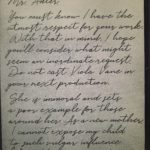 Mr. Adler
You must know I have the
utmost respect for your work.
With that in mind, I hope
you'll consider what might
seem an inordinate request.
Do not cast Viola Vane in
your next production.
She is immoral and sets
a poor example for those
around her. As a new mother
I cannot expose my child
to such vulgar influence